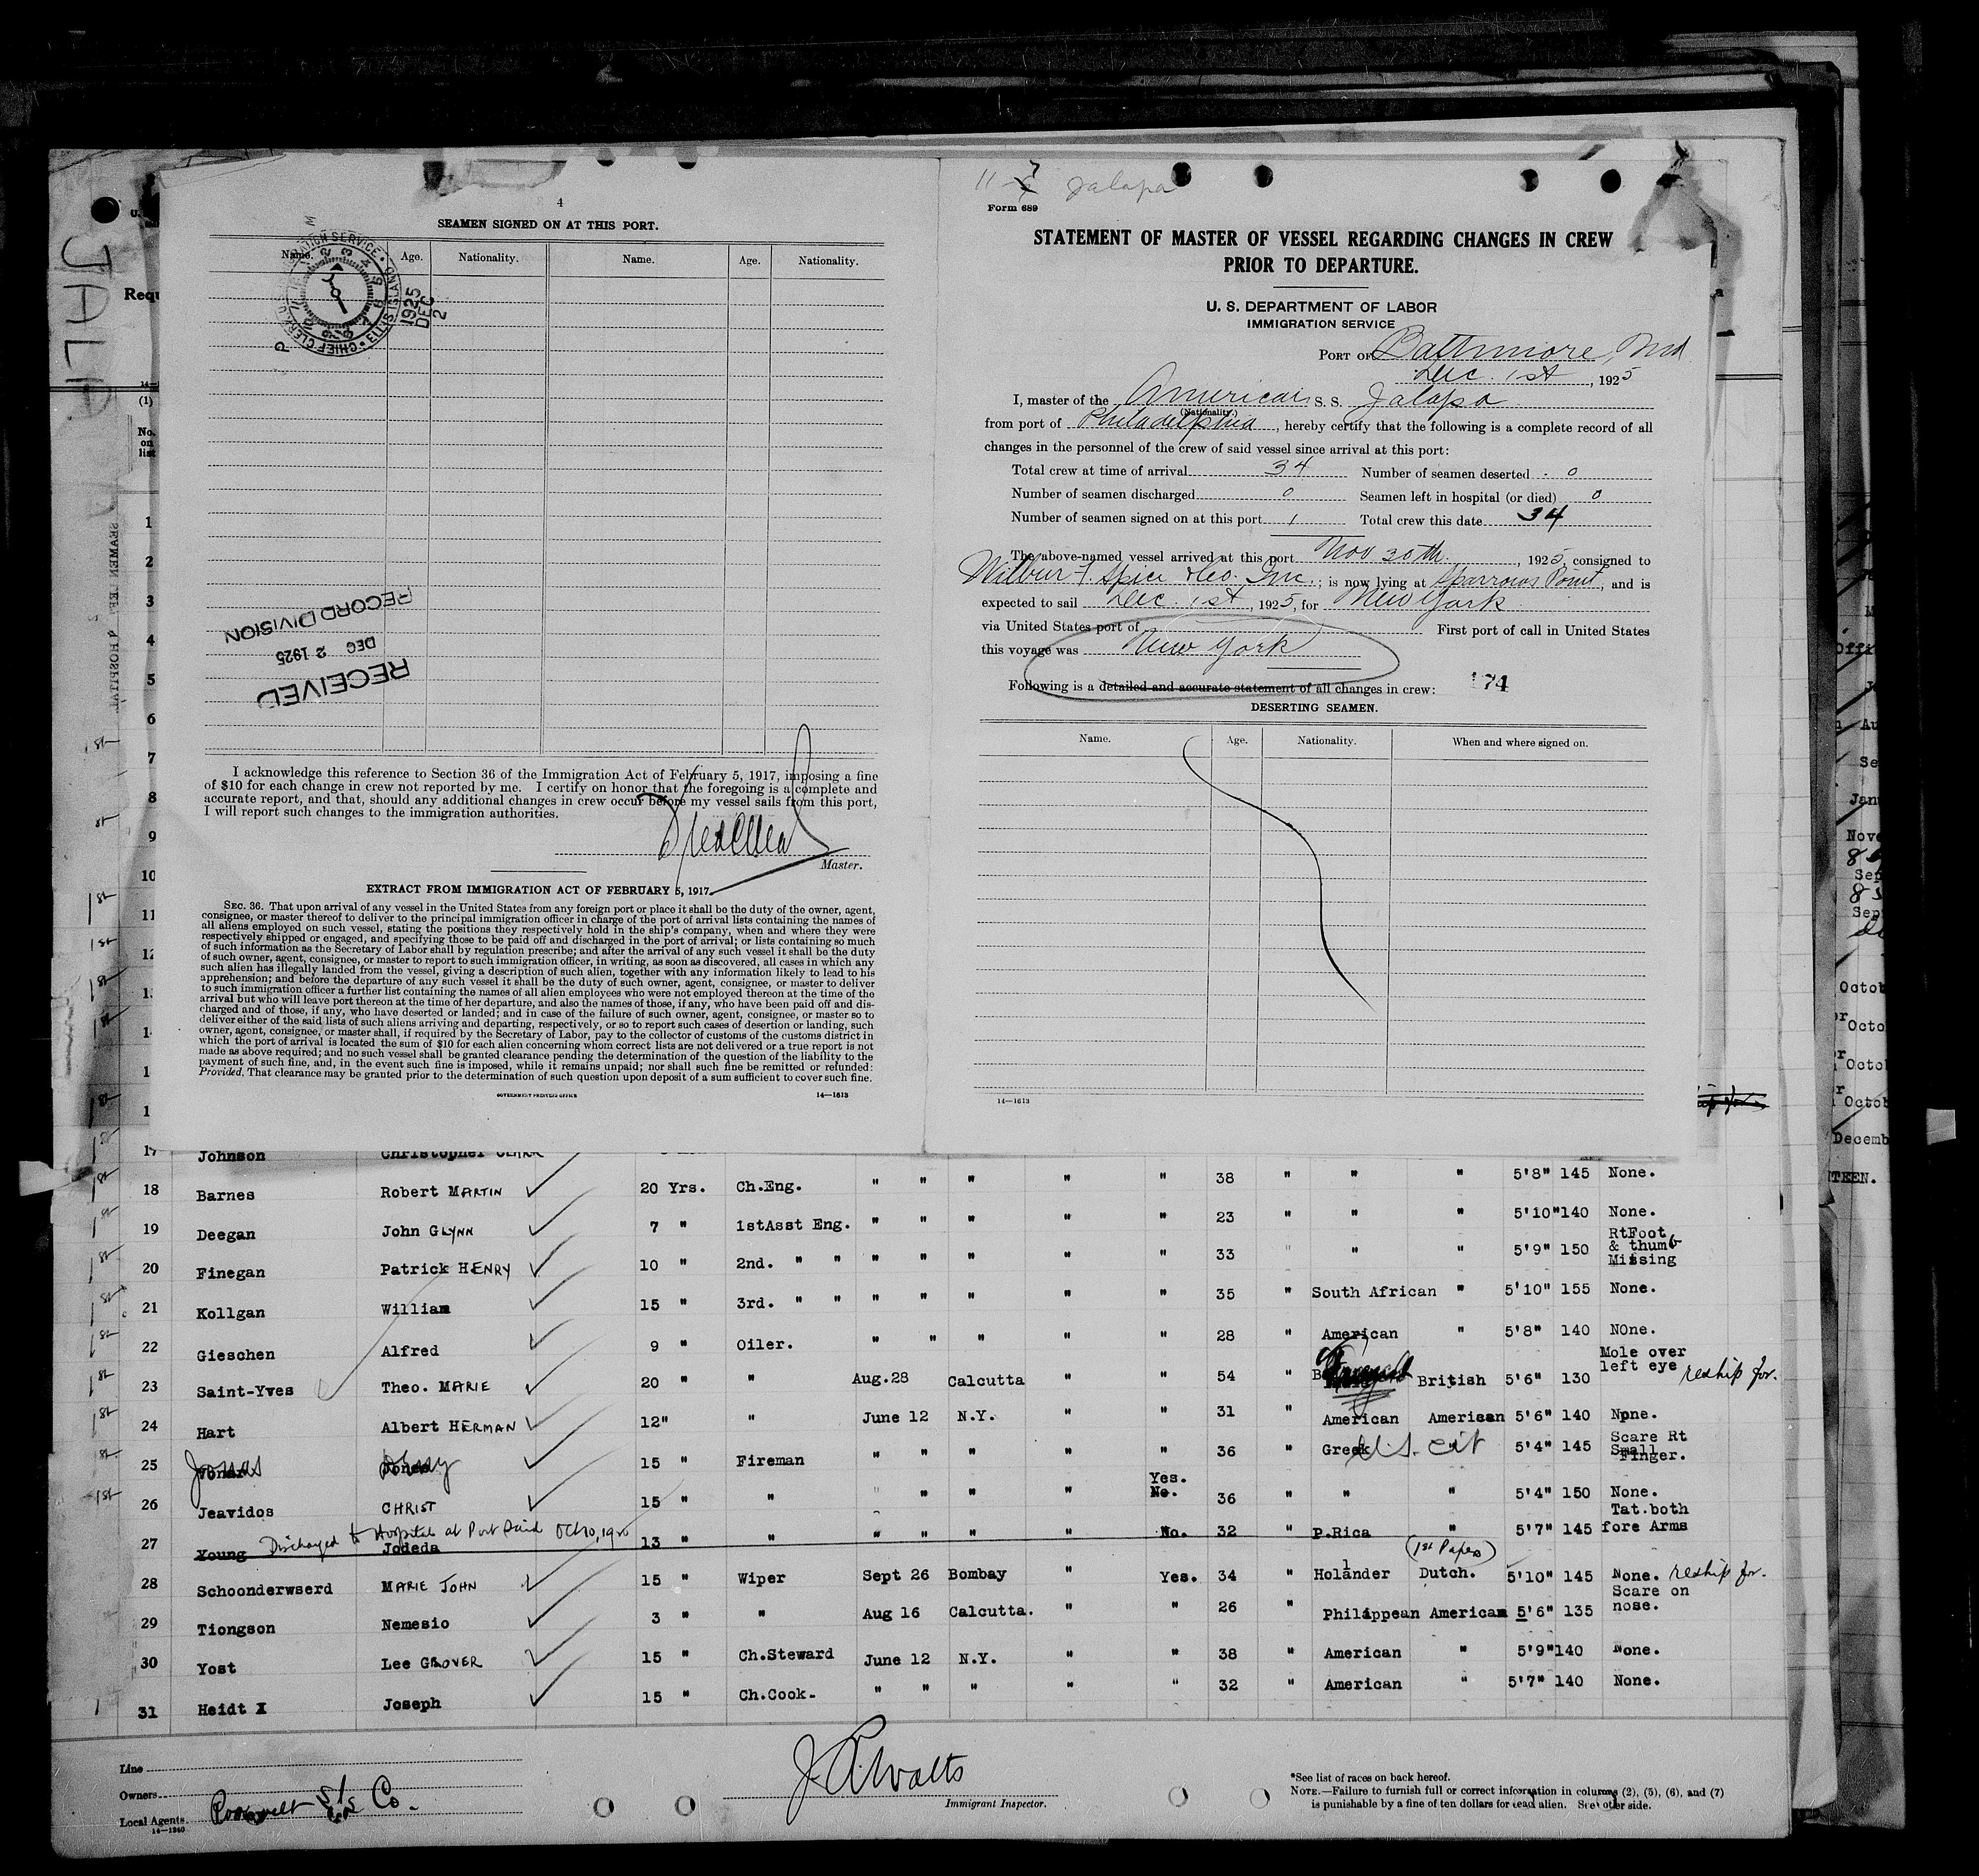 4
SEAMEN SIGNED ON AT THIS PORT.
Name. Age. Nationality. Name. Age. Nationality.
CHIEF CLERK ELLIS ISLAND
1925
DEC
2
RECORD DIVISION
DEC 2 1925
RECEIVED
I acknowledge this reference to Section 36 of the Immigration Act of February 5, 1917, imposing a fine
of $10 for each change in crew not reported by me. I certify on honor that the foregoing is a complete and
accurate report, and that, should any additional changes in crew occur before my vessel sails from this port,
I will report such changes to the immigration authorities.
Master.
EXTRACT FROM IMMIGRATION ACT OF FEBRUARY 5, 1917.
SEC. 36. That upon arrival of any vessel in the United States from any foreign port or place it shall be the duty of the owner, agent,
consignee, or master thereof to deliver to the principal immigration officer in charge of the port of arrival lists containing the names of
all aliens employed on such vessel, stating the positions they respectively hold in the ship's company, when and where they were
respectively shipped or engaged, and specifying those to be paid off and discharged in the port of arrival; or lists containing so much
of such information as the Secretary of Labor shall by regulation prescribe; and after the arrival of any such vessel it shall be the duty
of such owner, agent, consignee, or master to report to such immigration officer, in writing, as soon as discovered, all cases in which any
such alien has illegally landed from the vessel, giving a description of such alien, together with any information likely to lead to his
apprehension; and before the departure of any such vessel it shall be the duty of such owner, agent, consignee, or master to deliver
to such immigration officer a further list containing the names of all alien employees who were not employed thereon at the time of the
arrival but who will leave port thereon at the time of her departure, and also the names of those, if any, who have been paid off and dis-
charged and of those, if any, who have deserted or landed; and in case of the failure of such owner, agent, consignee, or master so to
deliver either of the said lists of such aliens arriving and departing, respectively, or so to report such cases of desertion or landing, such
owner, agent, consignee, or master shall, if required by the Secretary of Labor, pay to the collector of customs of the customs district in
which the port of arrival is located the sum of $10 for each alien concerning whom correct lists are not delivered or a true report is not
made as above required; and no such vessel shall be granted clearance pending the determination of the question of the liability to the
payment of such fine, and, in the event such fine is imposed, while it remains unpaid; nor shall such fine be remitted or refunded:
Provided, That clearance may be granted prior to the determination of such question upon deposit of a sum sufficient to cover such fine.
GOVERNMENT PRINTING OFFICE 14—1613
11-7 Jalapa
Form 689
STATEMENT OF MASTER OF VESSEL REGARDING CHANGES IN CREW
PRIOR TO DEPARTURE.
U. S. DEPARTMENT OF LABOR
IMMIGRATION SERVICE
PORT OF Baltimore, Md
Dec. 1st, 1925
I, master of the American S. S. Jalapa
(Nationality.)
from port of Philadelphia, hereby certify that the following is a complete record of all
changes in the personnel of the crew of said vessel since arrival at this port:
Total crew at time of arrival 34 Number of seamen deserted 0
Number of seamen discharged 0 Seamen left in hospital (or died) 0
Number of seamen signed on at this port 1 Total crew this date 34
The above-named vessel arrived at this port Nov 30th, 1925, consigned to
Wilbur F. Spice & Co. Inc.; is now lying at Sparrows Point, and is
expected to sail Dec. 1st, 1925, for New York
via United States port of First port of call in United States
this voyage was New York
Following is a detailed and accurate statement of all changes in crew: 174
DESERTING SEAMEN.
Name. Age. Nationality. When and where signed on.
14—1613
JALA
Requ
(1)
No.
on
list
1
2
3
4
5
6
7
8
9
10
11
12
17 Johnson Christopher CLARK
18 Barnes Robert MARTIN 20 Yrs. Ch.Eng. " " " " " 38 " " " 5'8" 145 None.
19 Deegan John GLYNN 7 " 1stAsst Eng. " " " " " 23 " " " 5'10" 140 None.
20 Finegan Patrick HENRY 10 " 2nd. " " " " " " " 33 " " " 5'9" 150 RtFoot & thumb Missing
21 Kollgan William 15 " 3rd. " " " " " " " 35 " South African " 5'10" 155 None.
22 Gieschen Alfred 9 " Oiler. " " " " " 28 " American " 5'8" 140 NOne.
23 Saint-Yves Theo. MARIE 20 " " Aug.28 Calcutta " " 54 " British 5'6" 130 Mole over left eye reship for.
24 Hart Albert HERMAN 12" " June 12 N.Y. " " 31 " American American 5'6" 140 None.
25 Jonas 15 " Fireman " " " " " 36 " Greek U.S. Cit 5'4" 145 Scare Rt Small Finger.
26 Jeavidos CHRIST 15 " " " " " " Yes. No. 36 " " " 5'4" 150 None.
27 Young Jodeda Discharged to Hospital at Port Said Oct 10, 19 13 " " " " " " No. 32 " P.Rica " 5'7" 145 Tat.both fore Arms
28 Schoonderwserd MARIE JOHN 15 " Wiper Sept 26 Bombay " Yes. 34 " Holander (1st Papers) Dutch. 5'10" 145 None. reship for.
29 Tiongson Nemesio 3 " " Aug 16 Calcutta. " " 26 " Philippean American 5'6" 135 Scare on nose.
30 Yost Lee GROVER 15 " Ch.Steward June 12 N.Y. " " 38 " American " 5'9" 140 None.
31 Heidt X Joseph 15 " Ch.Cook. " " " " " 32 " American " 5'7" 140 None.
Line
Owners
Local Agents Roosevelt S/S Co.
14—1240
Immigrant Inspector.
*See list of races on back hereof.
NOTE.—Failure to furnish full or correct information in columns (2), (5), (6), and (7)
is punishable by a fine of ten dollars for each alien. See other side.